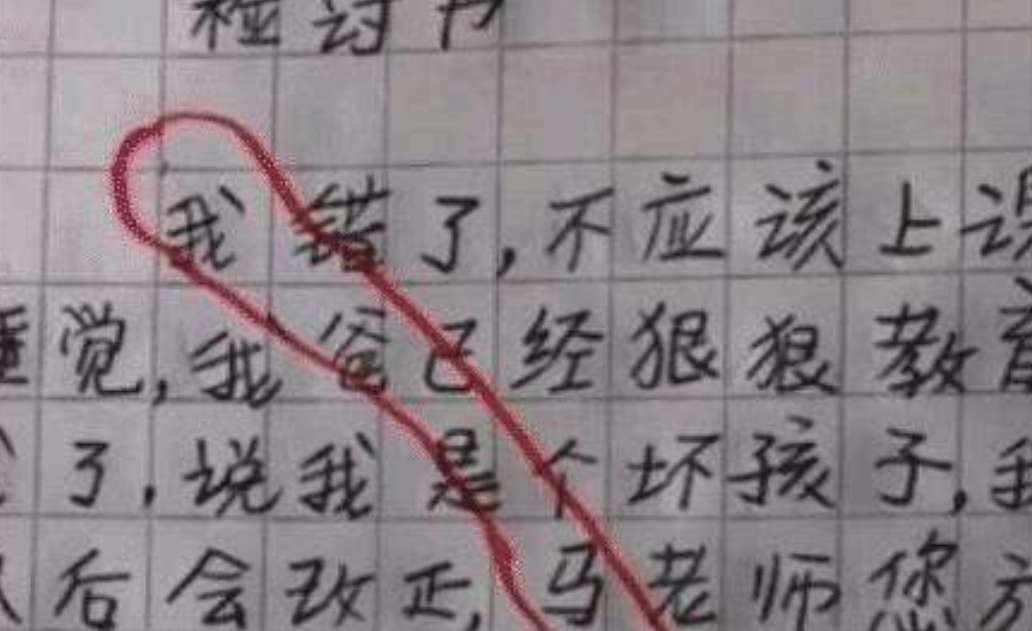 检讨书
我错了,不应该上课
睡觉,我爸已经狠狠教育
了,说我是个坏孩子,我
后会改正,马老师您放